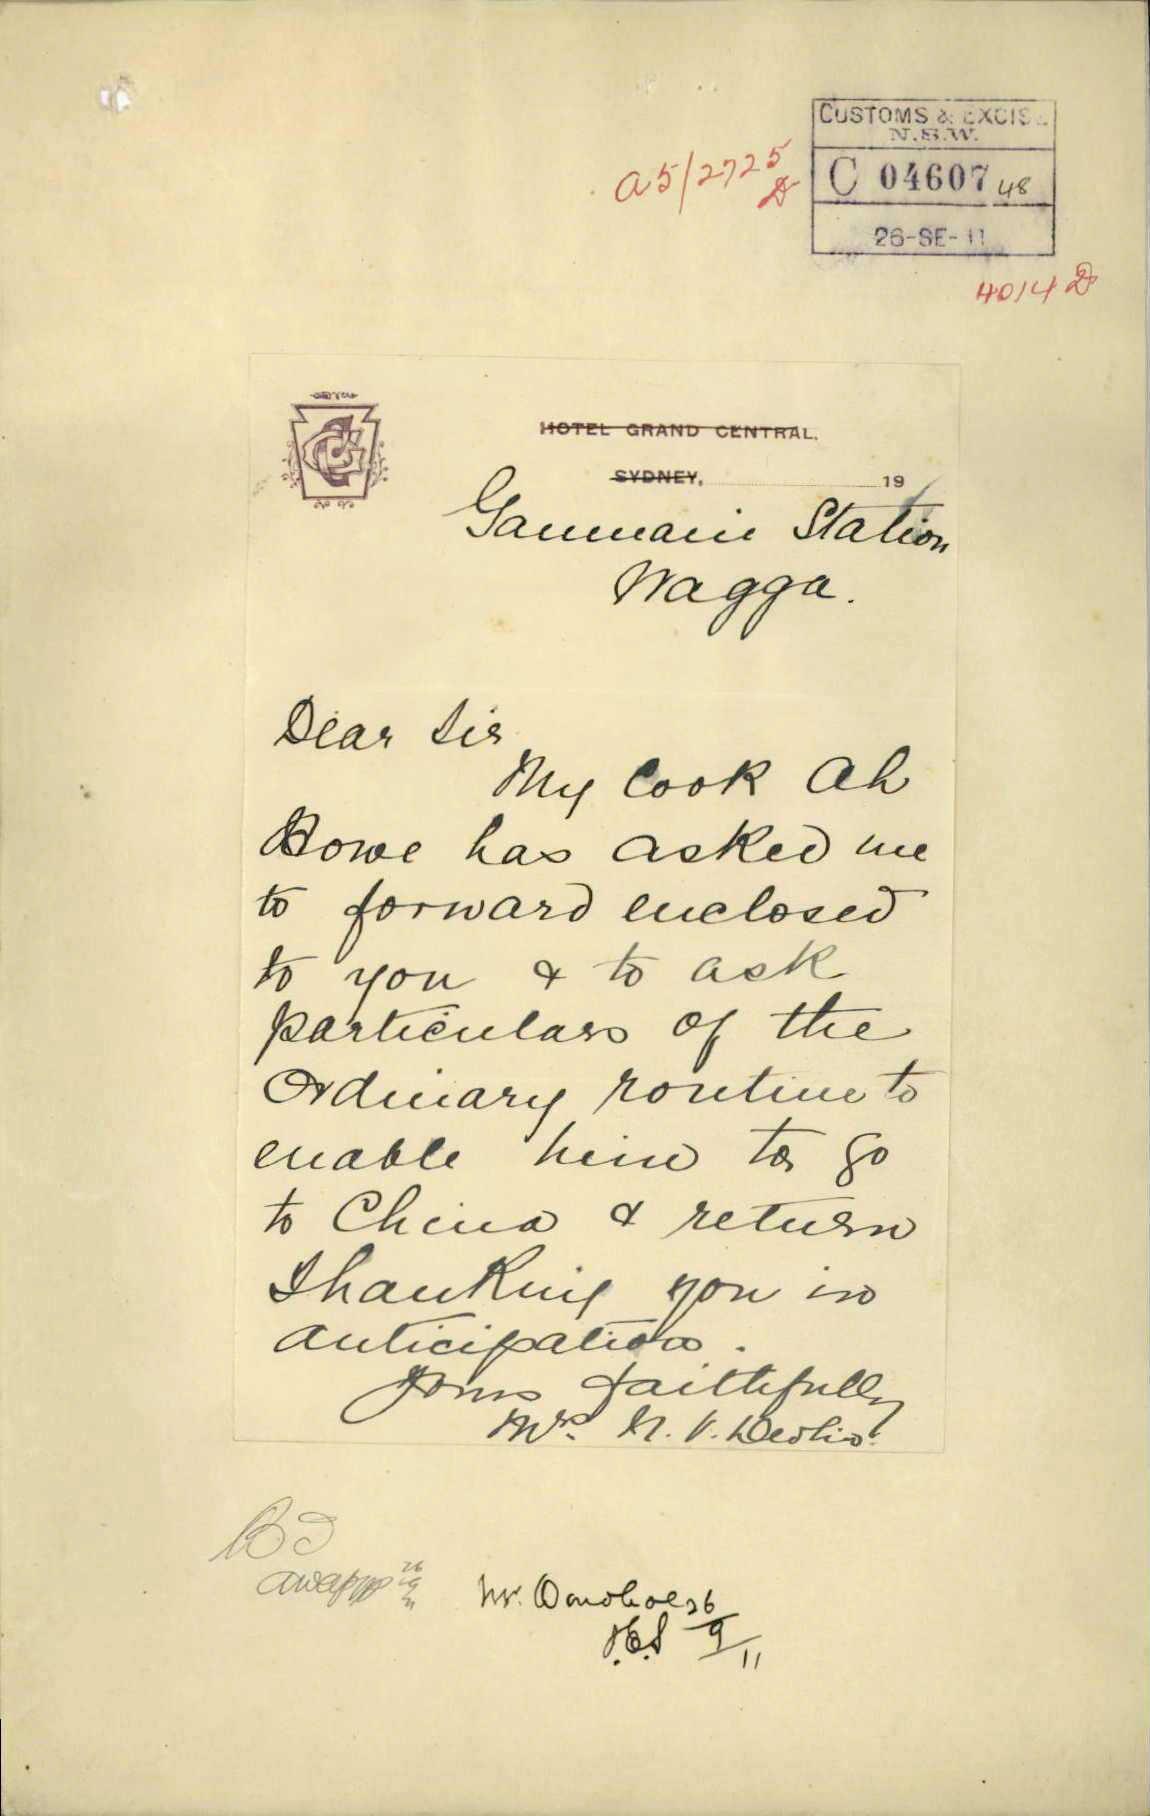 CUSTOMS & EXCISE
N.S.W.
C 04607 48
26-SE-11
A5/2725
4014
HOTEL GRAND CENTRAL.
SYDNEY, 19
Ganmain Station
Wagga.
Dear Sir
My Cook Ah
Bowe has asked me
to forward enclosed
to you & to ask
particulars of the
Ordinary routine to
enable him to go
to China & return
Thanking you in
anticipation.
Yours faithfully
Mrs. N. V. Devlin.
Mr. Donohoe 26
9
11